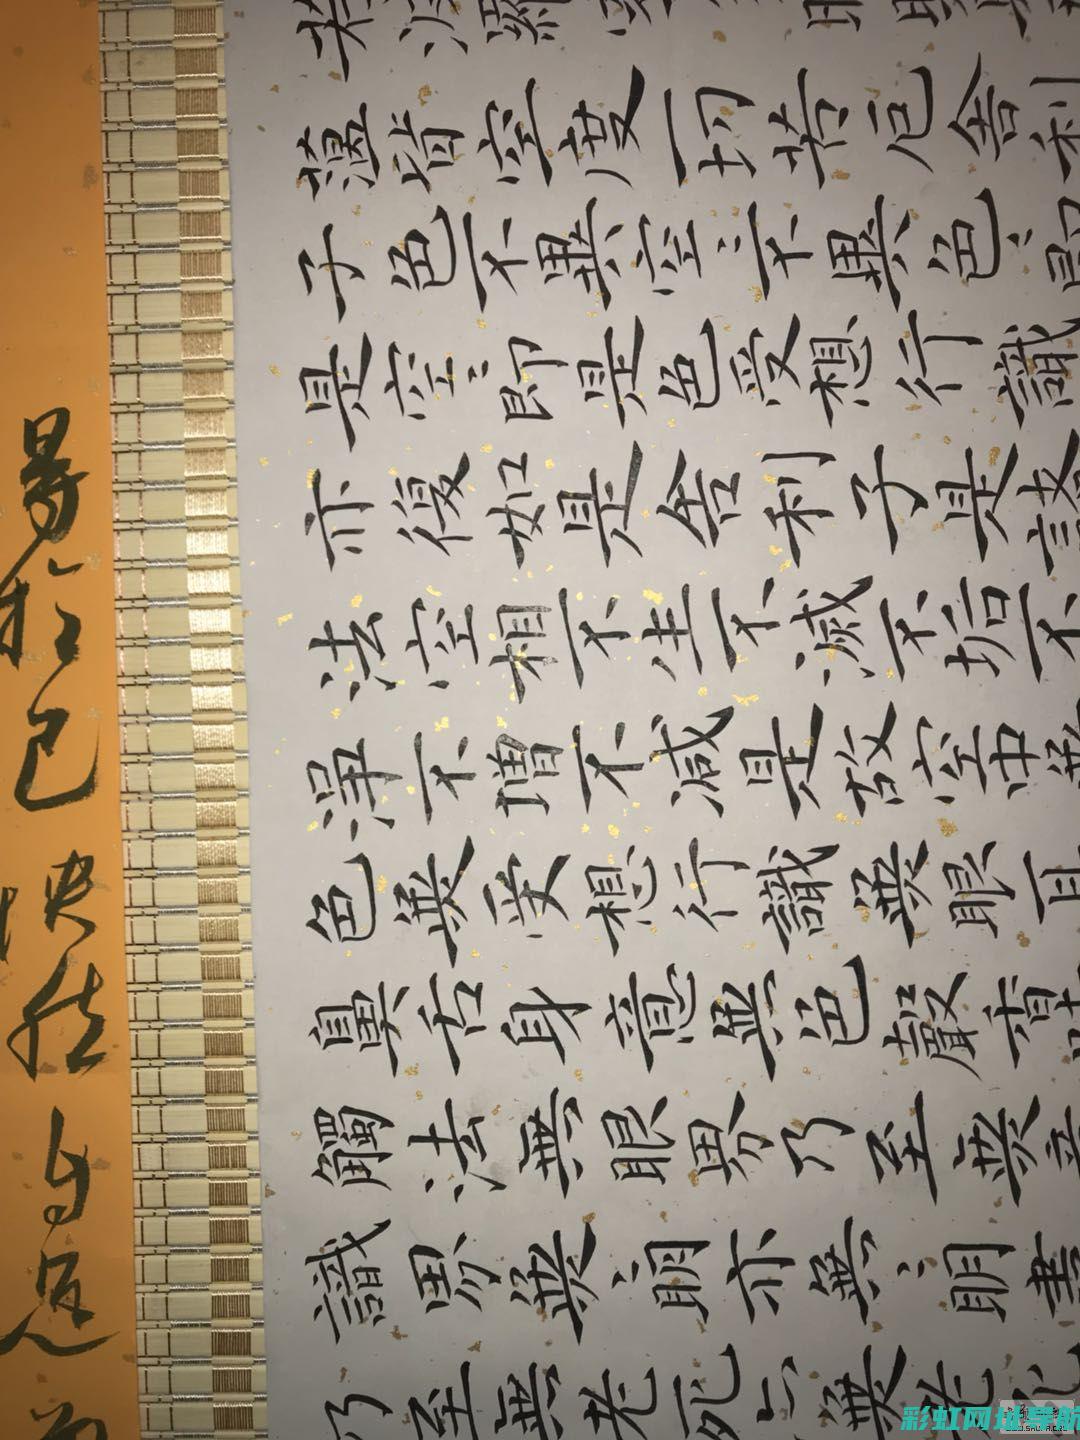 蘊皆空度一切苦厄舍利
子色不異空〻不異色〻即
是空〻即是色受想行識
亦復如是舍利子是諸
法空相不生不滅不垢不
淨不增不減是故空中無
色無受想行識無眼耳
鼻舌身意無色聲香味
觸法無眼界乃至無意
識界無〻明亦無〻明盡
乃至無老死亦無老死
得於己快然自足
彩虹网址导航